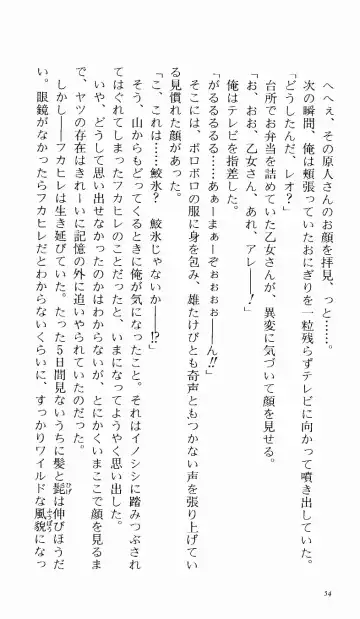 へへぇ、その原人さんのお顔を拝見、っと……。
次の瞬間、俺は頬張っていたおにぎりを一粒残らずテレビに向かって噴き出していた。
「どうしたんだ、レオ？」
台所でお弁当を詰めていた乙女さんが、異変に気づいて顔を見せる。
「お、おお、乙女さん、あれ、アレ——！」
俺はテレビを指差した。
「がるるるるる……あぁーまぁーぞぉぉぉぉ——ん!!」
そこには、ボロボロの服に身を包み、雄たけびとも奇声ともつかない声を張り上げてい
る見慣れた顔があった。
「こ、これは……鮫氷？　鮫氷じゃないか——!?」
そう、山からもどってくるときに俺が気になったこと。それはイノシシに踏みつぶされ
てはぐれてしまったフカヒレのことだったと、いまになってようやく思い出した。
いや、どうして思い出せなかったのかはわからないが、とにかくいまここで顔を見るま
で、ヤツの存在はきれーいに記憶の外に追いやられていたのだった。
しかし——フカヒレは生き延びていた。たった５日間見ないうちに髪と髭は伸びほうだ
い。眼鏡がなかったらフカヒレだとわからないくらいに、すっかりワイルドな風貌になっ
54